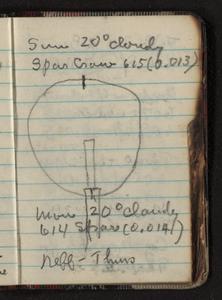 Sun 20° cloudy
Spar Crow 615 (0.013)
Mun 20° cloudy
614 Spare (0.014)
Neff - Thurs